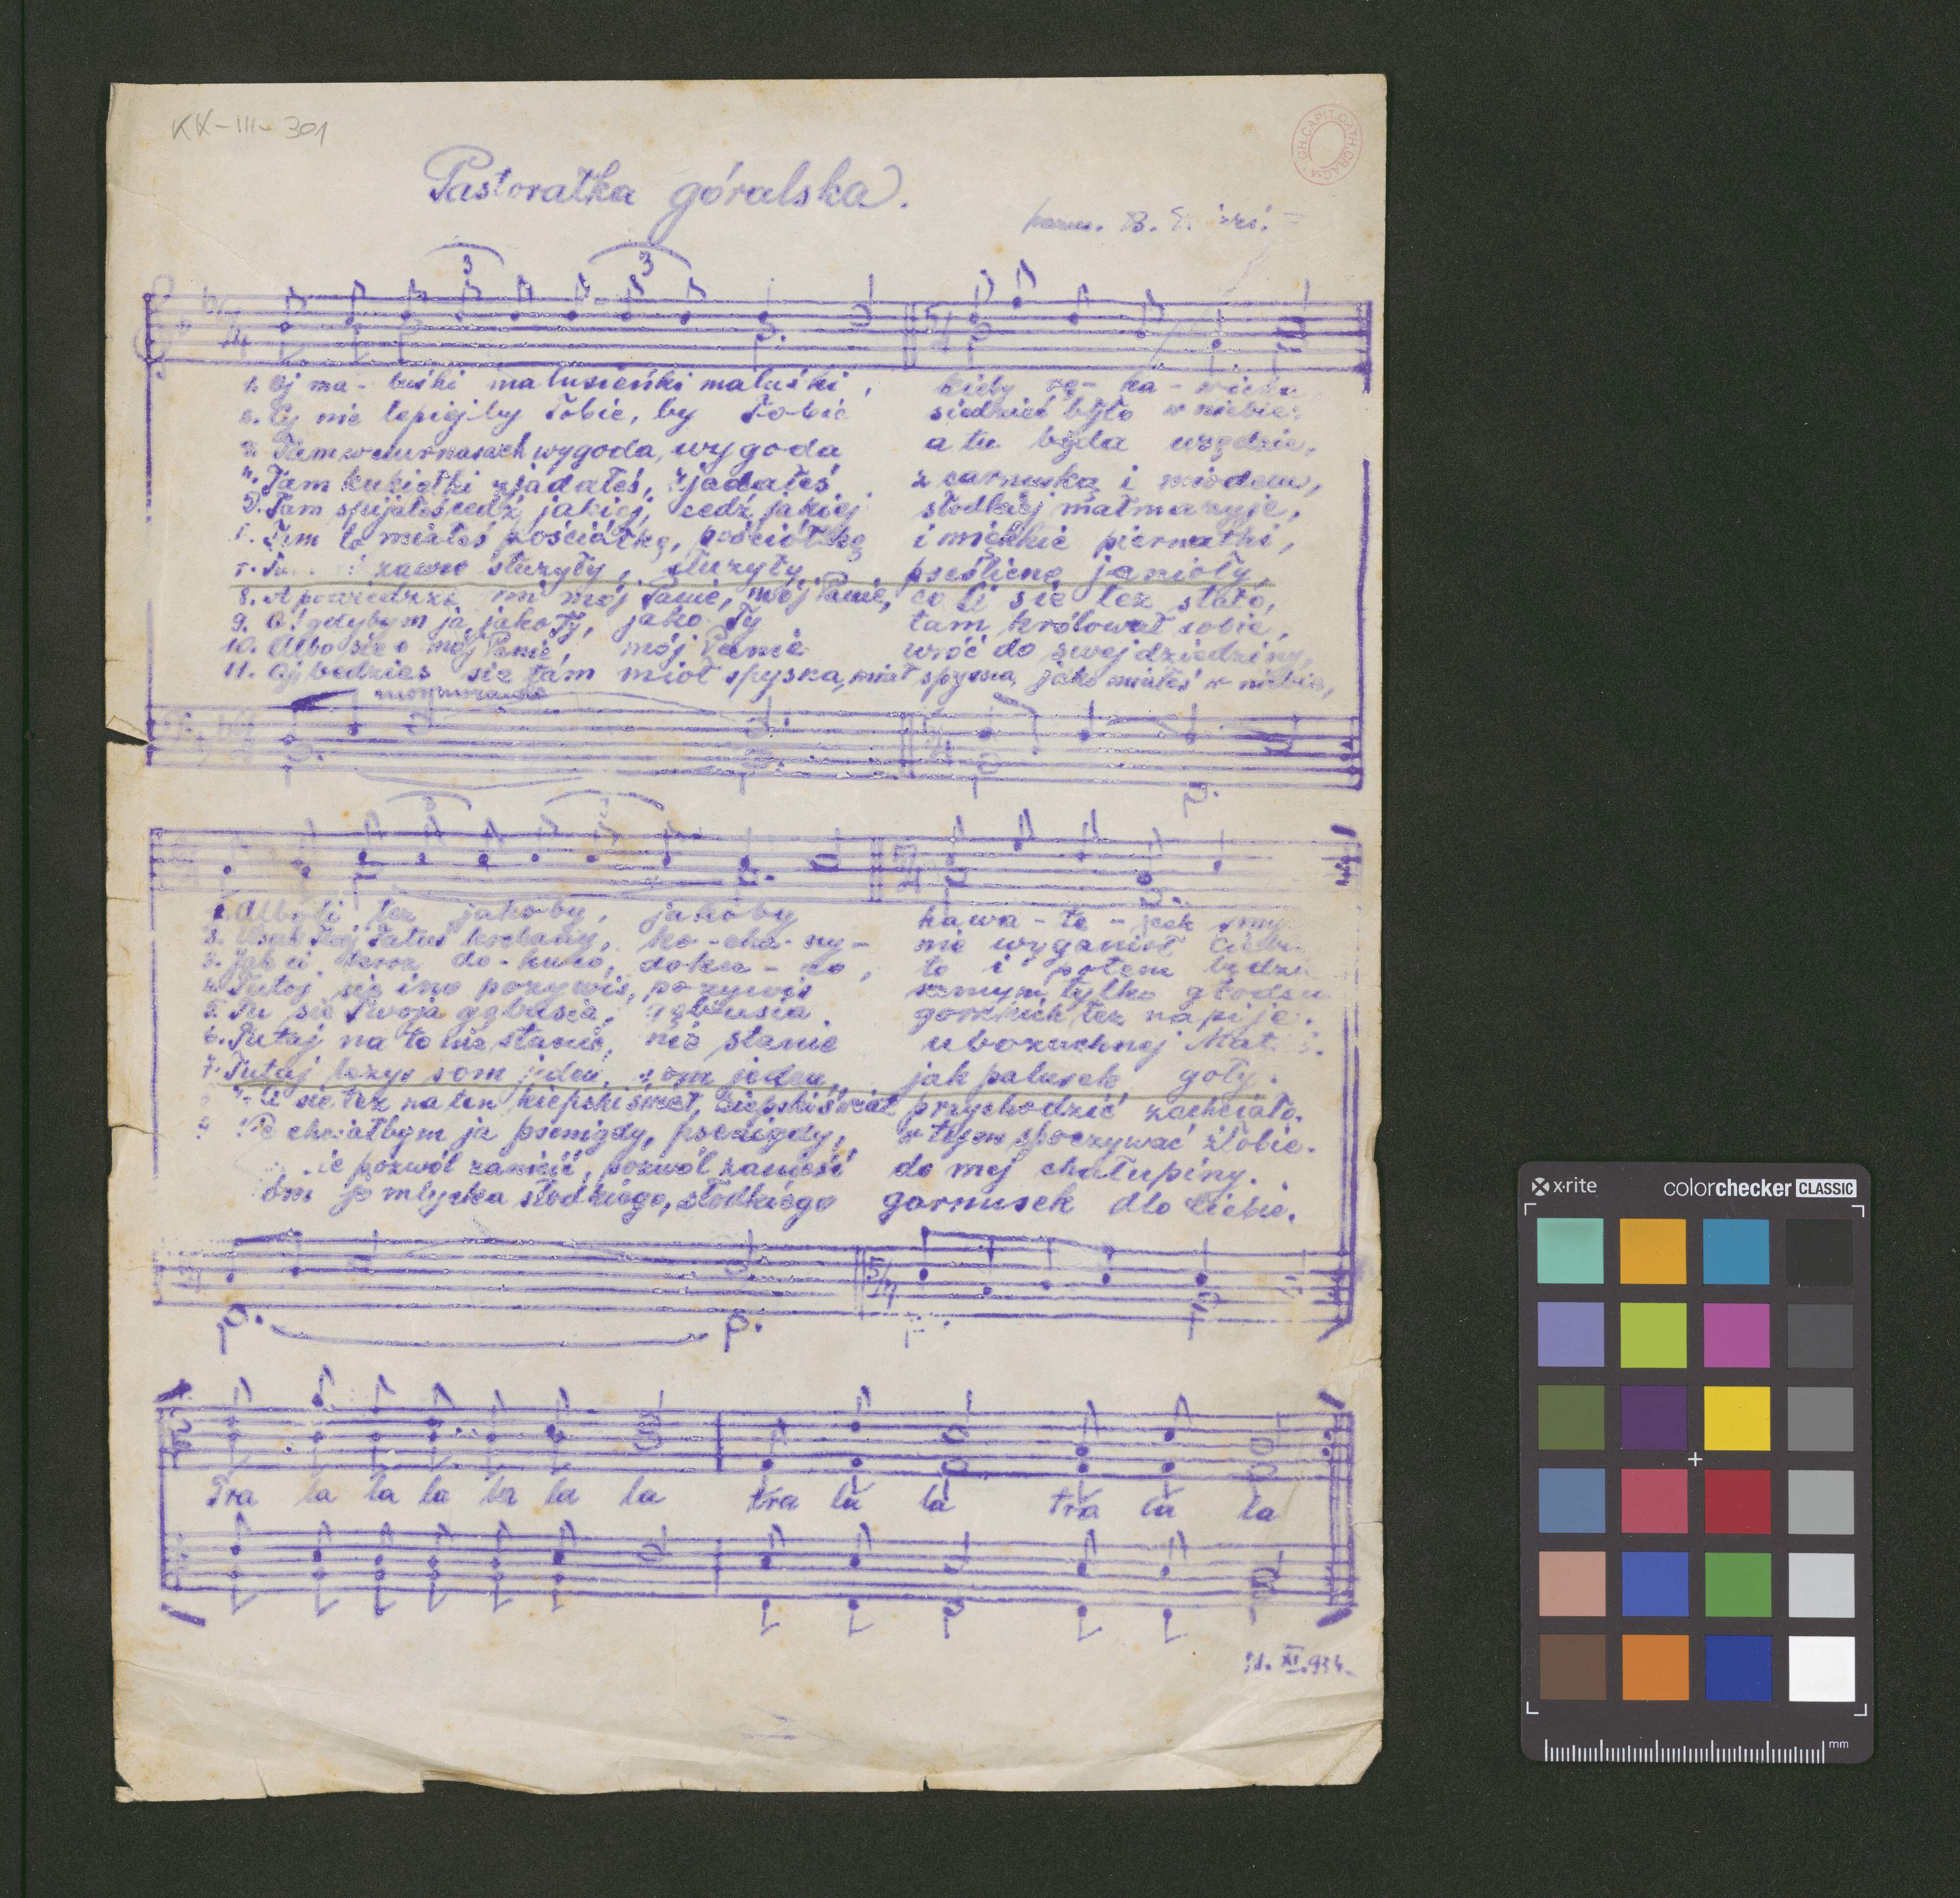 KK-III-301
Pastorałka góralska.
harm. B.
3 3
1. Oj ma-luśki malusieńki maluśki, kieby rę-ka-wicka
2. Cy nie lepiejby Tobie, by Tobie siedzieć było w niebie
3. Tam wygoda, wygoda a tu byda wsędzie,
4. Tam kukiełki zjadałeś, zjadałeś z carnuską i miodem,
5. Tam spijałeś cedź jakiej, cedź jakiej słodkiej małmazyje,
6. Tam to miałeś pościółkę, pościółkę i miękkie piernatki,
7. zawse słuzyły, słuzyły prześlicne janioły,
8. A powiedzze mi mój Panie, mój Panie, co Ci sie tez stało,
9. O! gdybym ja jako Ty, jako Ty tam królował sobie,
10. Albo sie o mój Panie, mój Panie wróć do swej dziedziny,
11. Oj bedzies sie tam mioł spyska, miał spyska, jako miałeś w niebie,
mormorando
1. Alboli tez jakoby, jakoby kawa-łe-cek smy
2. Wsak Twój Tatuś kochany, ko-cha-ny- nie wyganioł Ciebie
3. Jak ci teroz do-kuco, doku-co, to i potem będzie
4. Tutoj się ino pozywis, pozywis samym tylko głodem
5. Tu sie Twoja gębusia, gębusia gorzkich łez napije.
6. Tutaj na to nie stanie, nie stanie ubozuchnej Mat
7. Tutaj lezys som jeden, som jeden, jak palusek goły.
Ci sie tez na ten kiepski świat, kiepski świat przychodzić zachciało.
chciałbym ja psenigdy, psenigdy, w tym spoczywać żłobie.
pozwól zanieść, pozwól zanieść do mej chałupiny.
jo mlycka słodkiego, słodkiego garnusek dlo Ciebie.
Tra la la la la la la tra la la tra la la
XI.934.
x·rite colorchecker CLASSIC
mm